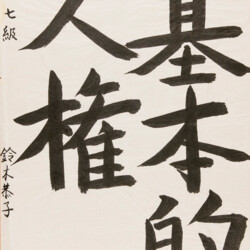 基本的
人権
七級
鈴木恭子